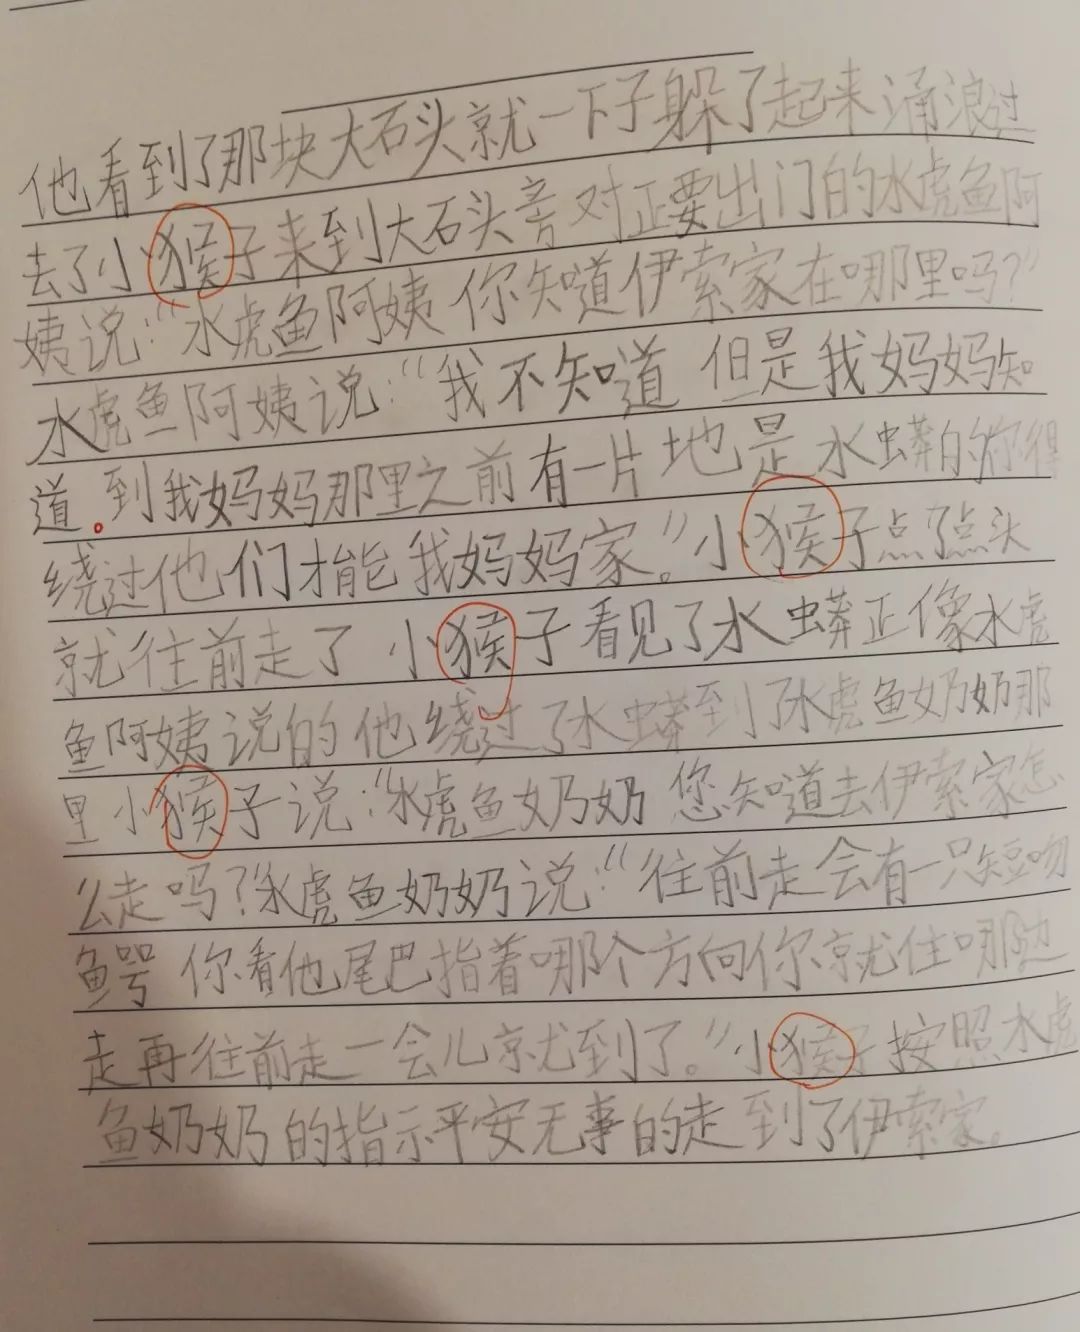 他看到了那块大石头就一下子躲了起来涌浪过
去了小猴子来到大石头旁对正要出门的水虎鱼阿
姨说：“水虎鱼阿姨你知道伊索家在哪里吗？”
水虎鱼阿姨说：“我不知道 但是我妈妈知
道。到我妈妈那里之前有一片地是水蟒的你得
绕过他们才能我妈妈家。”小猴子点了点头
就往前走了 小猴子看见了水蟒正像水虎
鱼阿姨说的他绕过了水蟒到了水虎鱼奶奶那
里小猴子说：“水虎鱼奶奶 您知道去伊索家怎
么走吗？”水虎鱼奶奶说：“往前走会有一只短吻
鱼咢 你看他尾巴指着哪个方向你就住哪边
走再往前走一会儿就到了。”小猴子按照水虎
鱼奶奶的指示平安无事的走到了伊索家。